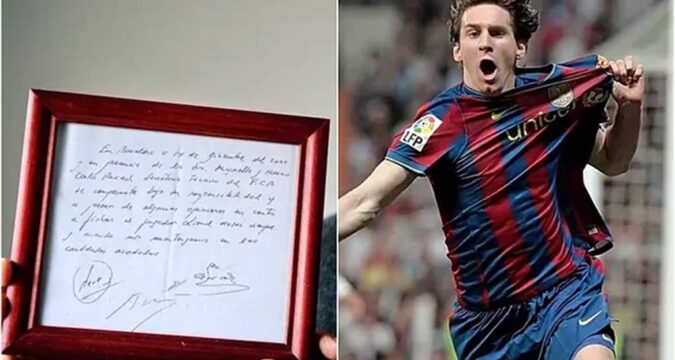 En Barcelona a 14 de diciembre del 2000
y en presencia de los Srs. Minguella y Horacio
Carles Rexach Director Técnico del F.C.B
se compromete bajo su responsabilidad y
a pesar de algunas opiniones en contra
a fichar al jugador Lionel Messi siempre
y cuando nos mantengamos en las
cantidades acordadas
LFP
unicef